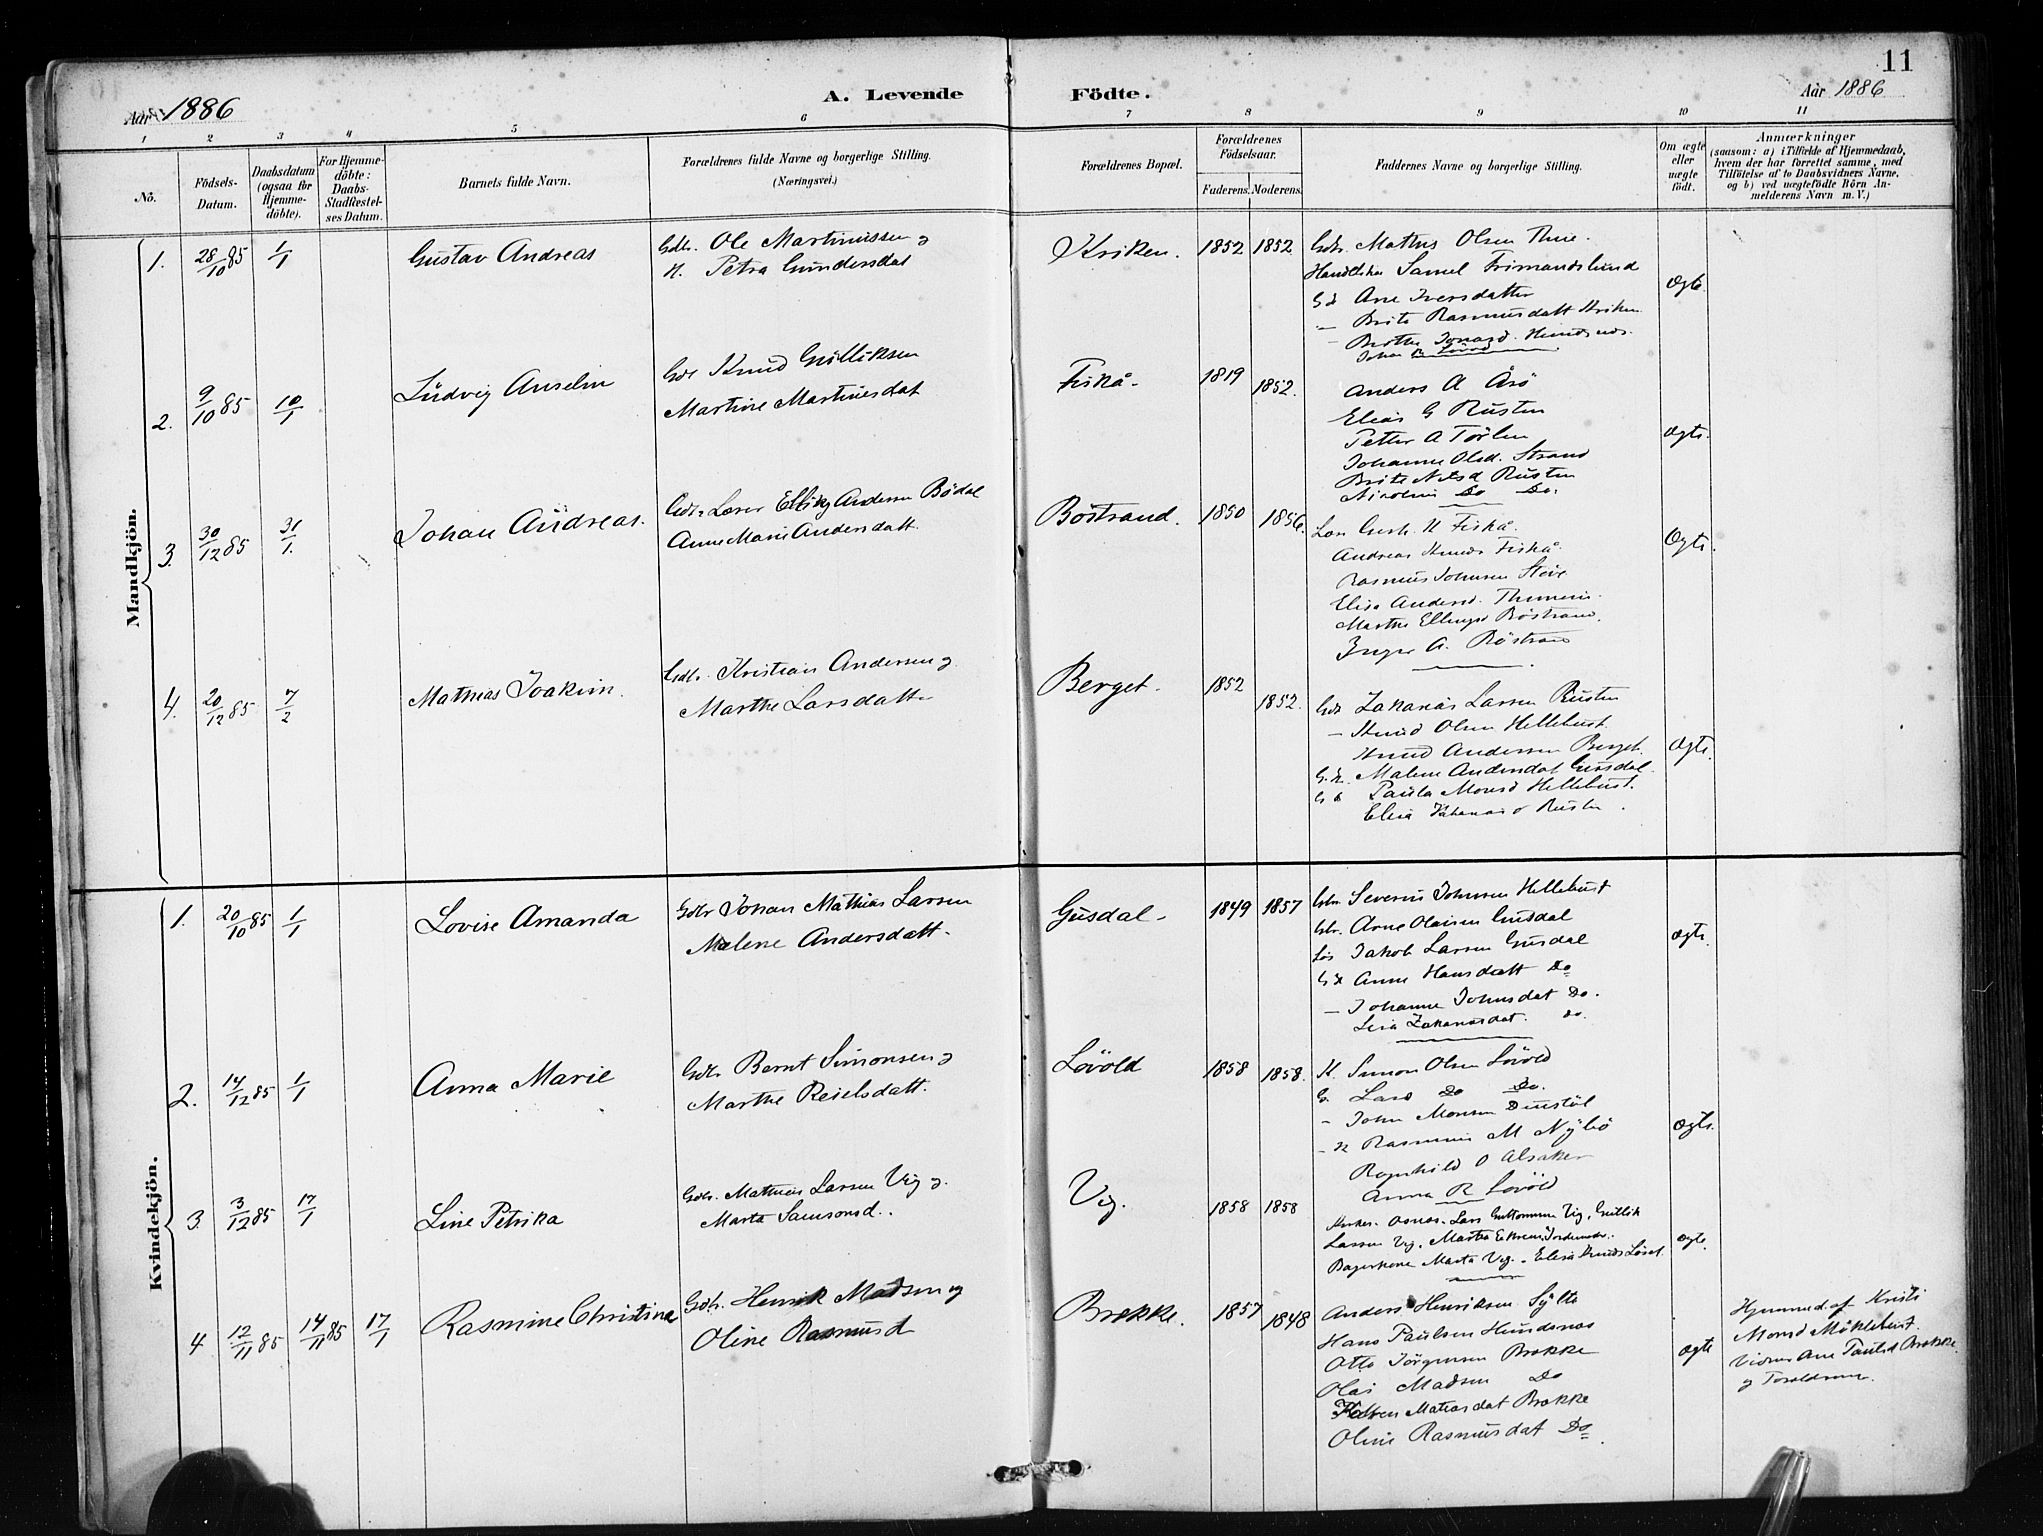 11
Aar 1886
A. Levende
Födte.
Aar 1886
1 2 3 4 5 6 7 8 9 10 11
No.
Födsels-
Datum.
Daabsdatum
(ogsaa for
Hjemme-
döbte).
For Hjemme-
döbte:
Daabs-
Stadfæstel-
ses Datum.
Barnets fulde Navn.
Forældrenes fulde Navne og borgerlige Stilling.
(Næringsvei.)
Forældrenes Bopæl.
Forældrenes
Födselsaar.
Faderens. Moderens.
Faddernes Navne og borgerlige Stilling.
Om ægte
eller
uægte
födt.
Anmærkninger
(saasom: a) i Tilfælde af Hjemmedaab,
hvem der har forrettet samme, med
Tilföielse af to Daabsvidners Navne,
og b) ved uægtefödte Börn An-
melderens Navn m. V.)
Mandkjön.
1. 28/10 85 1/1 Gustav Andreas
Gdbr. Ole Martinussen og
H. Petra Gundersdat
Kriken. 1852 1852
Gdbr. Mathis Olsen Thue
Samul Frimandslund
Ane Iversdatter
Brite Rasmusdatt Kriken
Ægte
2. 9/10 85 10/1 Ludvig Anselm
Gdbr Knud Gulliksen
Martine Martinusdat
Fiskå. 1819 1852.
Anders A Årö
Elias G Rusten
Petter A Törlen
Johanne Olsd. Strand
Brite Nilsd Rusten
Nicoline Do Do.
Ægte.
3. 30/12 85 31/1. Johan Andreas.
Anders Bödal
Anne Marie Andersdatt.
Böstrand. 1850 1856.
Andreas Knuds Fiskå.
Rasmus Johnsen
Elisa Andersd.
Marthe Böstrand.
Inger A. Böstrand
Ægte.
4. 20/12 85 7/2 Mathias Joakim.
Gdbr. Kristian Andersen og
Marthe Larsdatt
Berget. 1852 1852.
Zakarias Larsen Rusten
Knud Olsen Hellebust.
Knud Andersen Berget.
Malene Andersdat Gusdal.
Paula Monsd Hellebust.
Rusten.
Ægte.
Kvindekjön.
1. 20/10 85 1/1 Lovise Amanda
Gdbr Johan Mathias Larsen
Malene Andersdatt.
Gusdal. 1849 1857
Severin Johnsen Hellebust
Arne Olaisen Gusdal
Jakob Larsen Gusdal
Anne Hansdatt Do
Johanne Johnsdat Do.
Zakariasdat. do.
Ægte
2. 14/12 85 1/1 Anna Marie
Gdbr Bernt Simonsen og
Marthe Reielsdatt.
Lövold 1858 1858.
K. Simon Olsen Lövold
G. Lars Do Do.
John Monsen
Rasmus M Nybö
Ragnhild O Alsaker
Anna R Lövold
Ægte.
3. 3/12 85 17/1 Line Petrika
Gdbr. Mathias Larsen Vig og
Marta Samsonsd.
Vig. 1858 1858
Lars Guttormsen Vig, Gullik
Larsen Vig, Martha
Marta Vig.
Ægte.
4 12/11 85 14/11 85 17/1 Rasmine Christine
Gdbr. Henrik Madsen og
Oline Rasmusd
Brekke. 1857 1848
Anders Henriksen Sylte
Hans Paulsen Hundsnes
Otto Jörgensen Brekke
Olai Madsen Do
Matiasdat Brekke
Oline Rasmusdat Do
Ægte
Hjemmed af Kristi
Monsd Myklebust.
Vidner Ane Paulsd Brekke
og Forældrene.